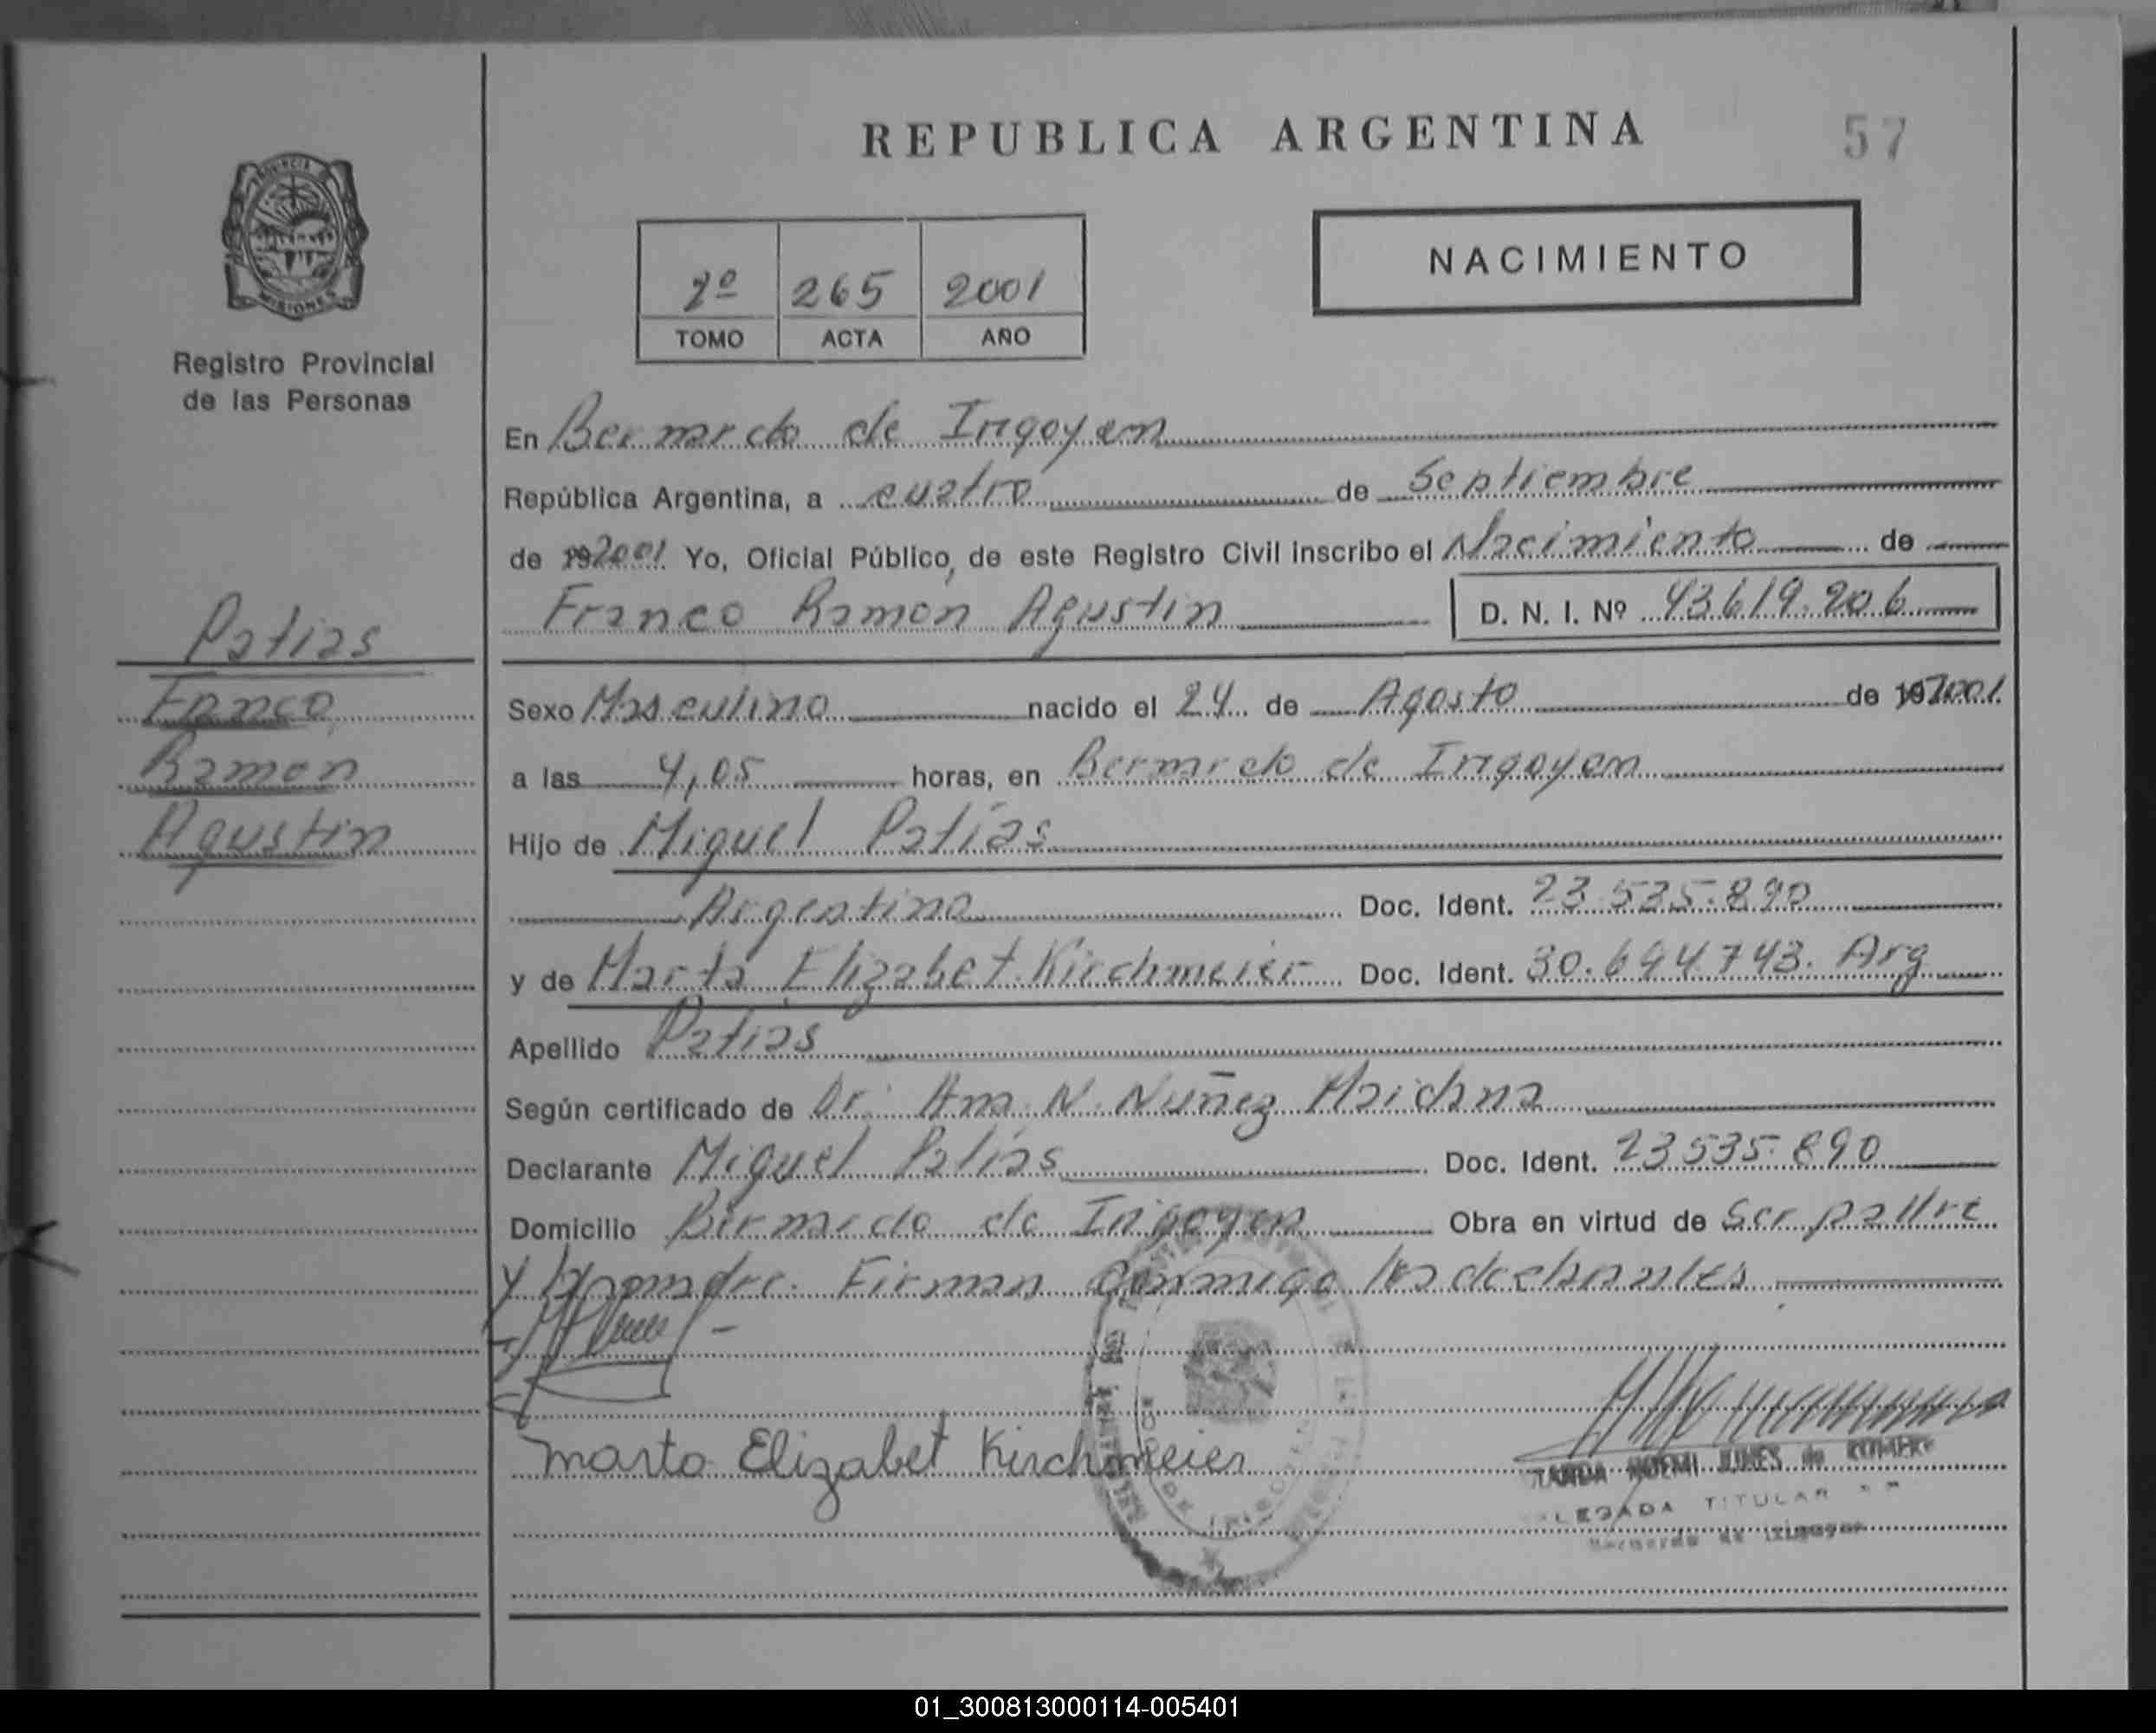 REPUBLICA ARGENTINA
57
PROVINCIA
MISIONES
Registro Provincial
de las Personas
2º 265 2001
TOMO ACTA AÑO
NACIMIENTO
En Bernardo de Irigoyen
República Argentina, a cuatro de Septiembre
de 192001 Yo, Oficial Público, de este Registro Civil inscribo el Nacimiento de
Franco Ramón Agustin D. N. I. Nº 43.619.206
Patias
Franco
Ramon
Agustin
Sexo Masculino nacido el 24 de Agosto de 192001
a las 4,05 horas, en Bernardo de Irigoyen
Hijo de Miguel Patias
Argentino Doc. Ident. 23.535.890
y de Marta Elizabet Kirchmeier Doc. Ident. 30.694743. Arg
Apellido Patias
Según certificado de Dr. N. Nuñez Maidana
Declarante Miguel Patias Doc. Ident. 23535.890
Domicilio Bernardo de Irigoyen Obra en virtud de Ser padre
y madre. Firman conmigo
Marta Elizabet Kirchmeier
NOEMI de ROMERO
LEGADA TITULAR
Bernardo de Irigoyen
01_300813000114-005401